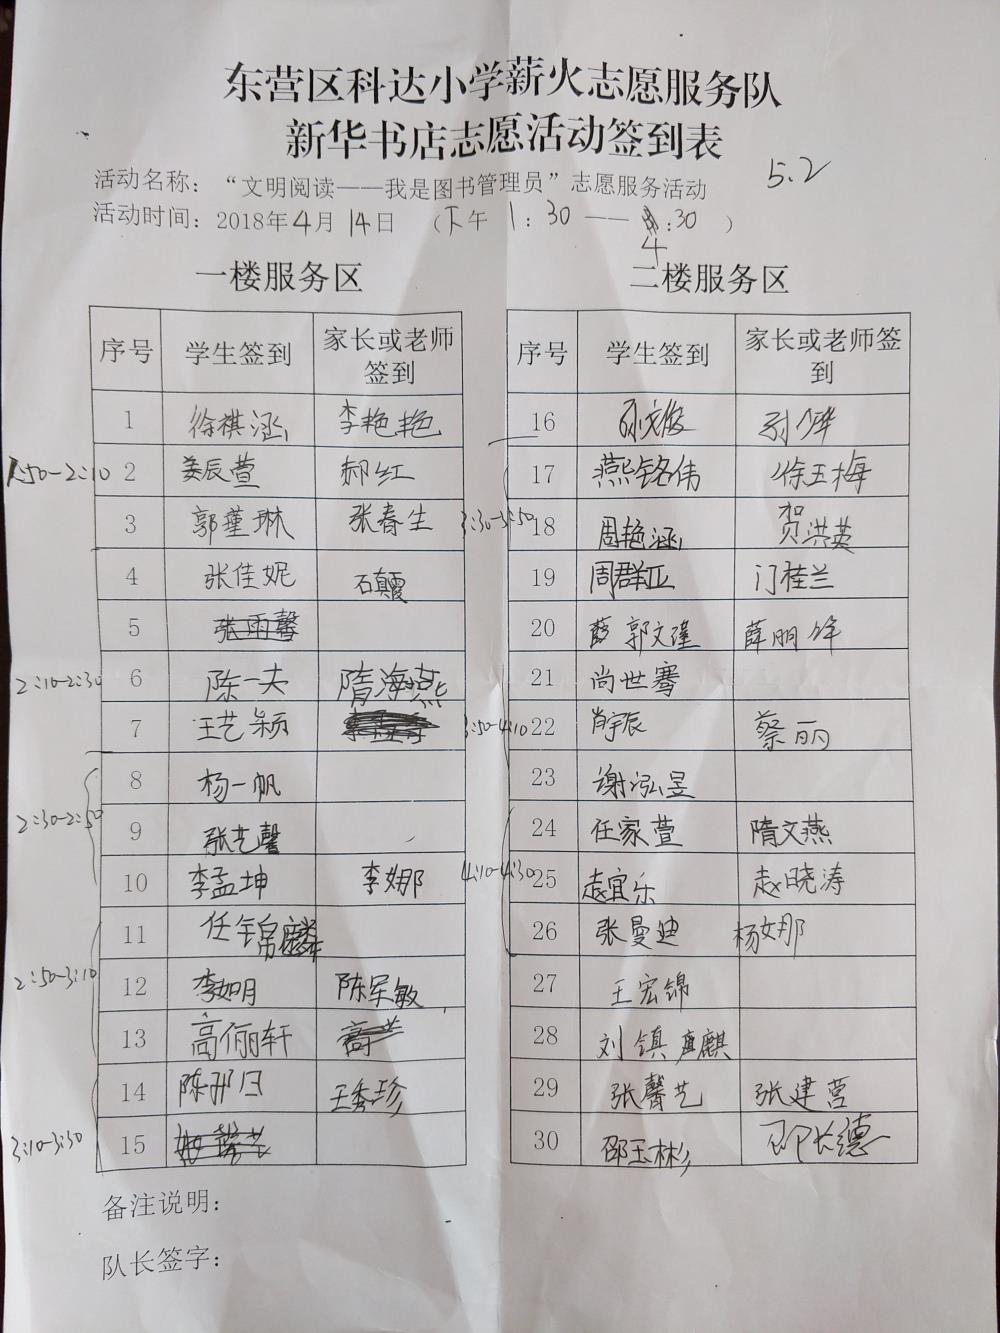 东营区科达小学薪火志愿服务队
新华书店志愿活动签到表
5.2
活动名称：“文明阅读——我是图书管理员”志愿服务活动
活动时间：2018年4月14日 （下午1：30——4：30）
一楼服务区
序号 学生签到 家长或老师签到
1 徐祺涵 李艳艳
1:50-2:10 2 姜辰萱 郝红
3 郭堇琳 张春生
4 张佳妮 石颠覆
5 张雨馨
2:10-2:30 6 陈一夫 隋海燕
7 王艺颖
8 杨一帆
2:30-2:50 9 张艺馨
10 李孟坤 李娜
11 任锦麟
2:50-3:10 12 李如月 陈军敏
13 高俪轩 高
14 陈 王秀珍
3:10-3:30 15
二楼服务区
序号 学生签到 家长或老师签到
16 孙文俊
17 燕铭伟 徐玉梅
3:30-3:50 18 周艳涵 贺洪英
19 周群 门桂兰
20 郭文瑾 薛丽
21 尚世骞
3:50-4:10 22 肖宇辰 蔡丽
23 谢泓昱
24 任家萱 隋文燕
4:10-4:30 25 赵宜乐 赵晓涛
26 张曼迪 杨娜
27 王宏锦
28 刘镇麒
29 张馨艺 张建营
30 邵玉彬 邵长德
备注说明：
队长签字：